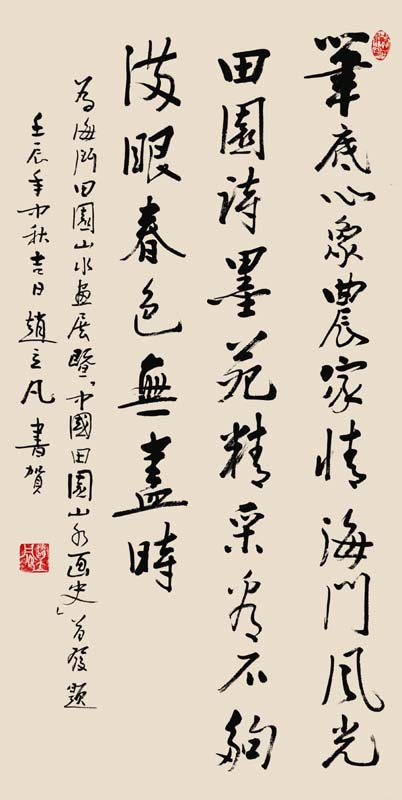 筆底心象農家情海門風光
田園詩墨苑精采看不夠
滿眼春色無盡時
為海門田園山水畫展暨「中國田園山水画史」首發題
壬辰年中秋吉日趙立凡書賀